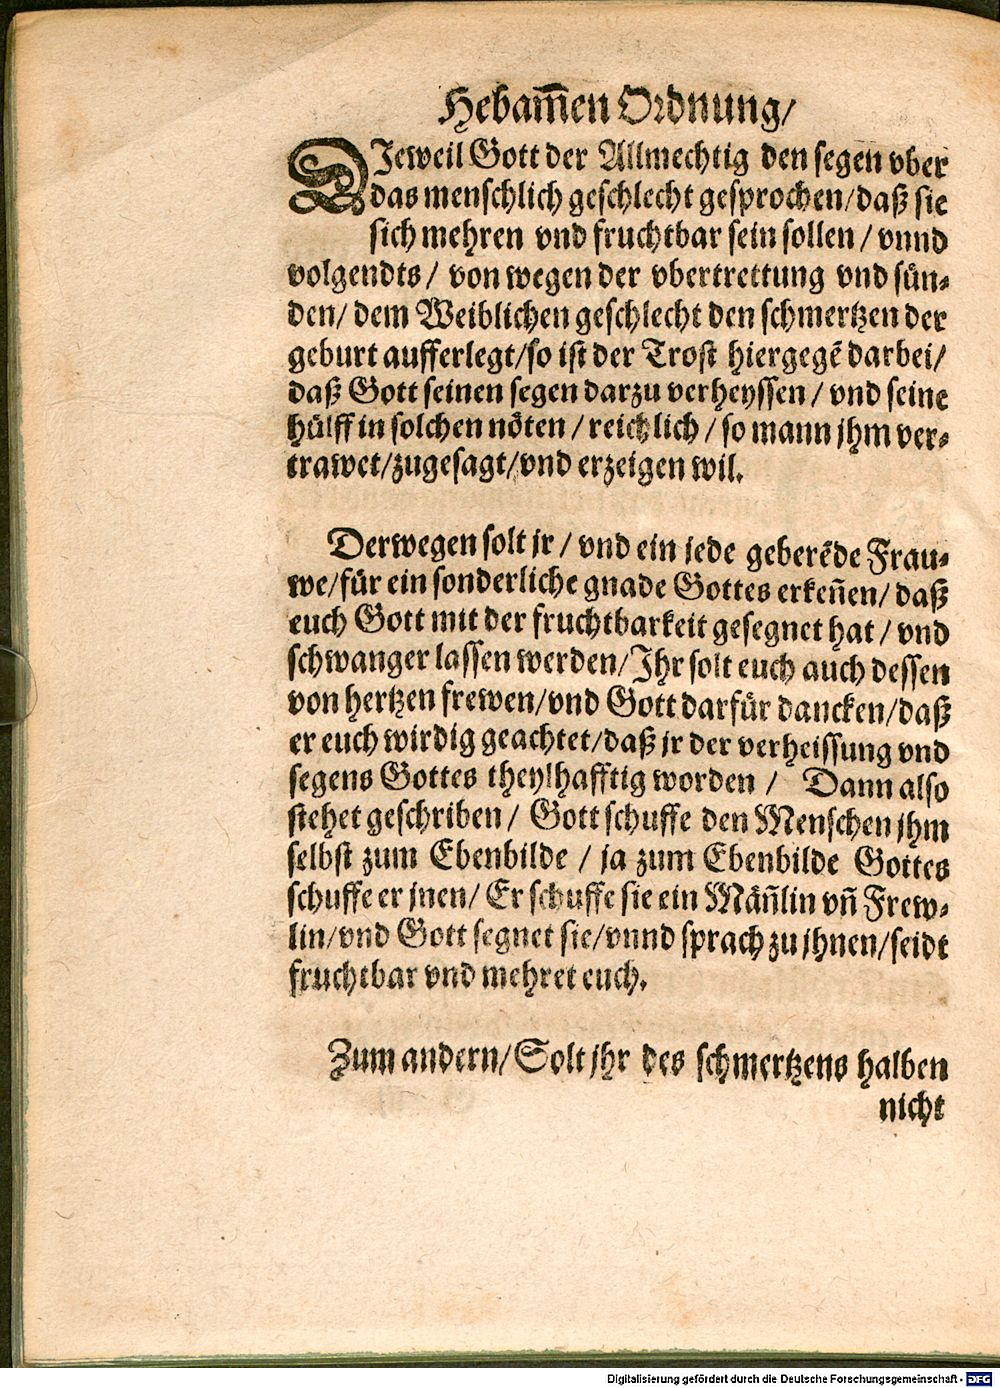 Hebam̅en Ordnung/
DJeweil Gott der Allmechtig den segen vber
das menschlich geschlecht gesprochen/daß sie
sich mehren vnd fruchtbar sein sollen / vnnd
volgendts / von wegen der vbertrettung vnd sün⸗
den/ dem Weiblichen geschlecht den schmertzen der
geburt aufferlegt/so ist der Trost hiergegẽ darbei/
daß Gott seinen segen darzu verheyssen / vnd seine
hülff in solchen nöten / reichlich / so mann jhm ver⸗
trawet/zugesagt/vnd erzeigen wil.
Derwegen solt jr / vnd ein jede geberẽde Frau⸗
we/für ein sonderliche gnade Gottes erkeñen/ daß
euch Gott mit der fruchtbarkeit gesegnet hat / vnd
schwanger lassen werden/Jhr solt euch auch dessen
von hertzen frewen/vnd Gott darfür dancken/daß
er euch wirdig geachtet/daß jr der verheissung vnd
segens Gottes theylhafftig worden / Dann also
stehet geschriben / Gott schuffe den Menschen jhm
selbst zum Ebenbilde / ja zum Ebenbilde Gottes
schuffe er jnen/ Er schuffe sie ein Mäñlin vñ Frew⸗
lin/vnd Gott segnet sie/vnnd sprach zu jhnen/seidt
fruchtbar vnd mehret euch.
Zum andern/Solt jhr des schmertzens halben
nicht
Digitalisierung gefördert durch die Deutsche Forschungsgemeinschaft - DFG